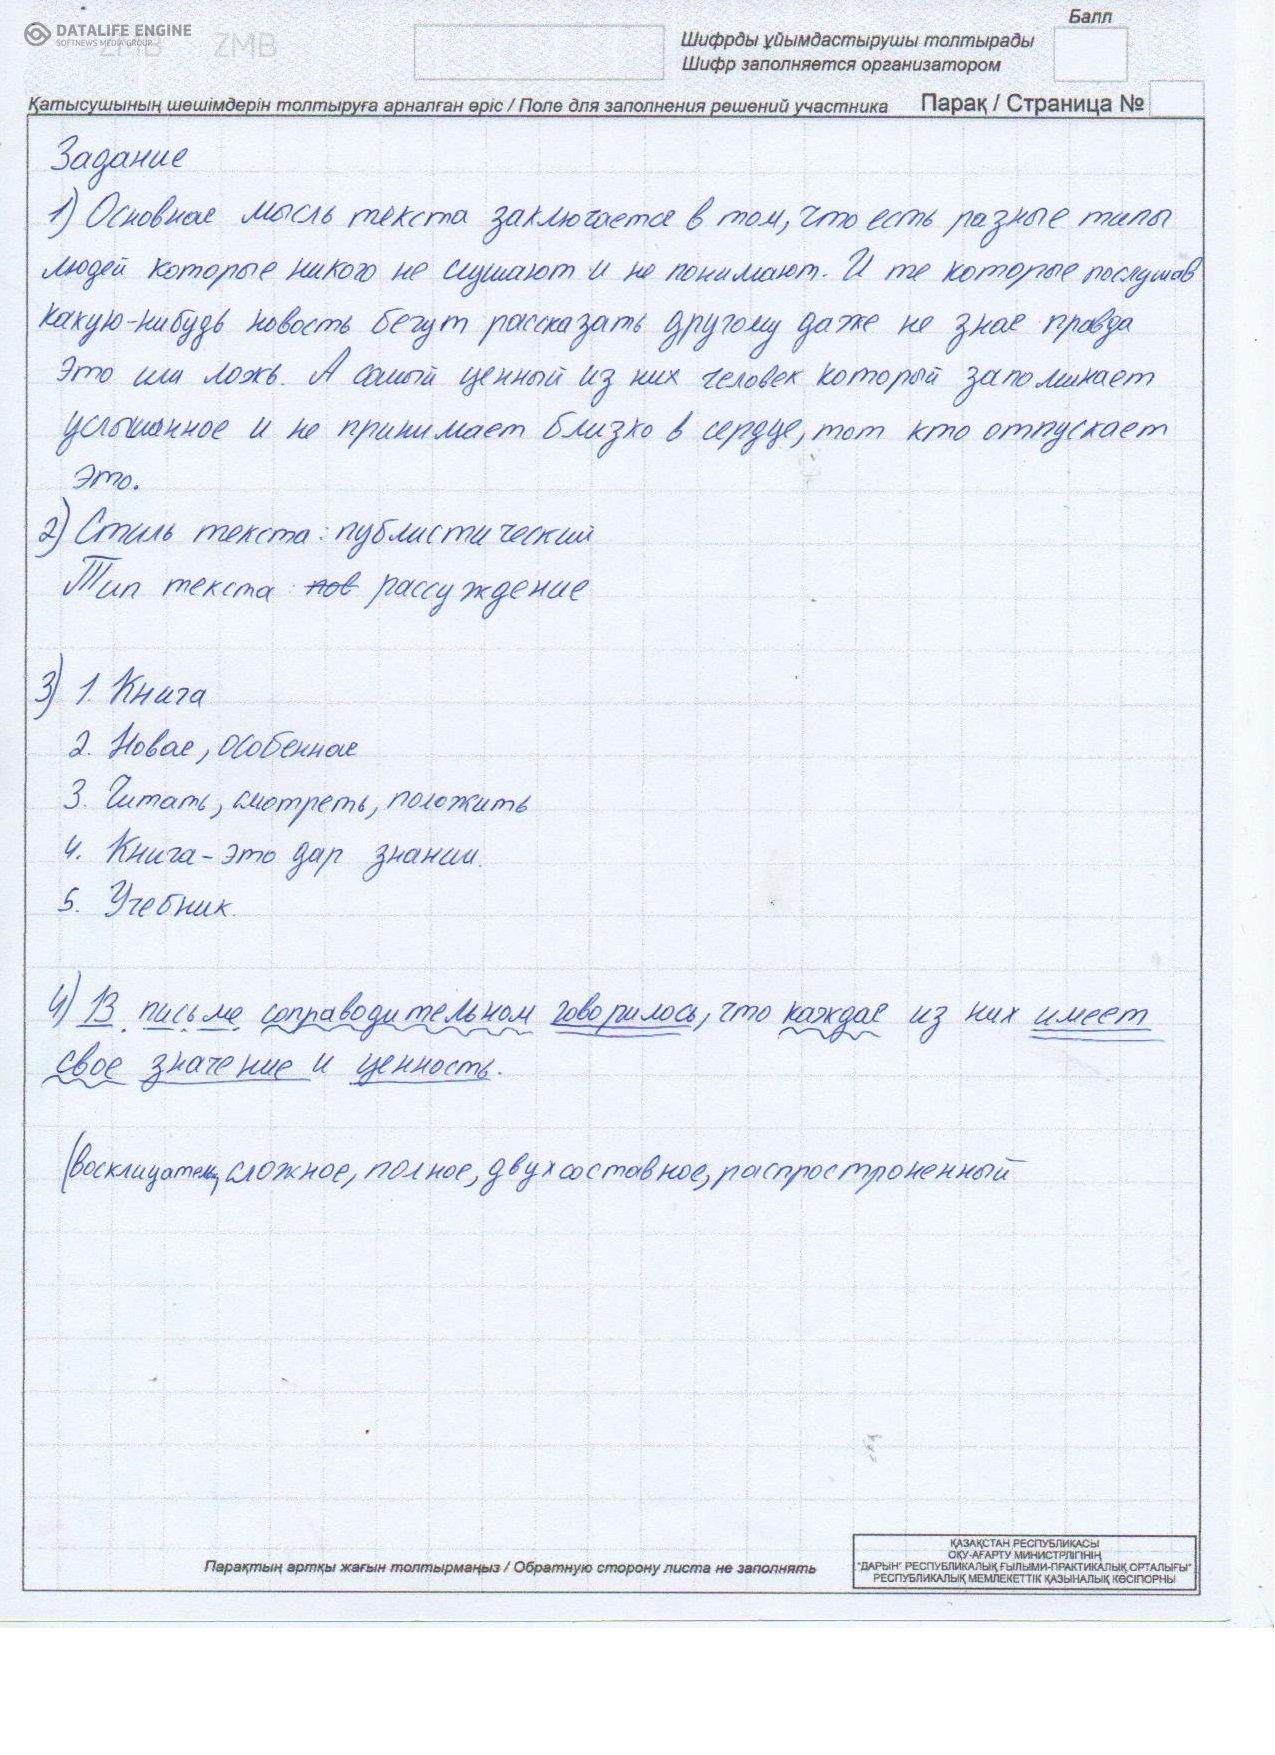 DATALIFE ENGINE
SOFTNEWS MEDIA GROUP
ZMB ZMB
Балл
Шифрды ұйымдастырушы толтырады
Шифр заполняется организатором
Қатысушының шешімдерін толтыруға арналған өріс / Поле для заполнения решений участника Парақ / Страница №
Задание
1) Основная мысль текста заключается в том, что есть разные типы
людей которые никого не слушают и не понимают. И те которые послушав
какую-нибудь новость бегут рассказать другому даже не зная правда
это или ложь. А самый ценный из них человек который запоминает
услышанное и не принимает близко в сердце, тот кто отпускает
это.
2) Стиль текста: публистический
Тип текста: пов рассуждение
3) 1. Книга
2. Новая, особенная
3. Читать, смотреть, положить
4. Книга - это дар знании.
5. Учебник.
4) В письме соправодительном говорилось, что каждая из них имеет
свое значение и ценность.
(восклицательн, сложное, полное, двухсоставное, распростроненный
Парақтың артқы жағын толтырмаңыз / Обратную сторону листа не заполнять
ҚАЗАҚСТАН РЕСПУБЛИКАСЫ
ОҚУ-АҒАРТУ МИНИСТРЛІГІНІҢ
"ДАРЫН" РЕСПУБЛИКАЛЫҚ ҒЫЛЫМИ-ПРАКТИКАЛЫҚ ОРТАЛЫҒЫ"
РЕСПУБЛИКАЛЫҚ МЕМЛЕКЕТТІК ҚАЗЫНАЛЫҚ КӘСІПОРНЫ